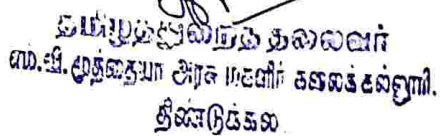 தமிழ்த்துறைத் தலைவர்
எம்.வி.முத்தையா அரசு மகளிர் கலைக்கல்லூரி.
திண்டுக்கல